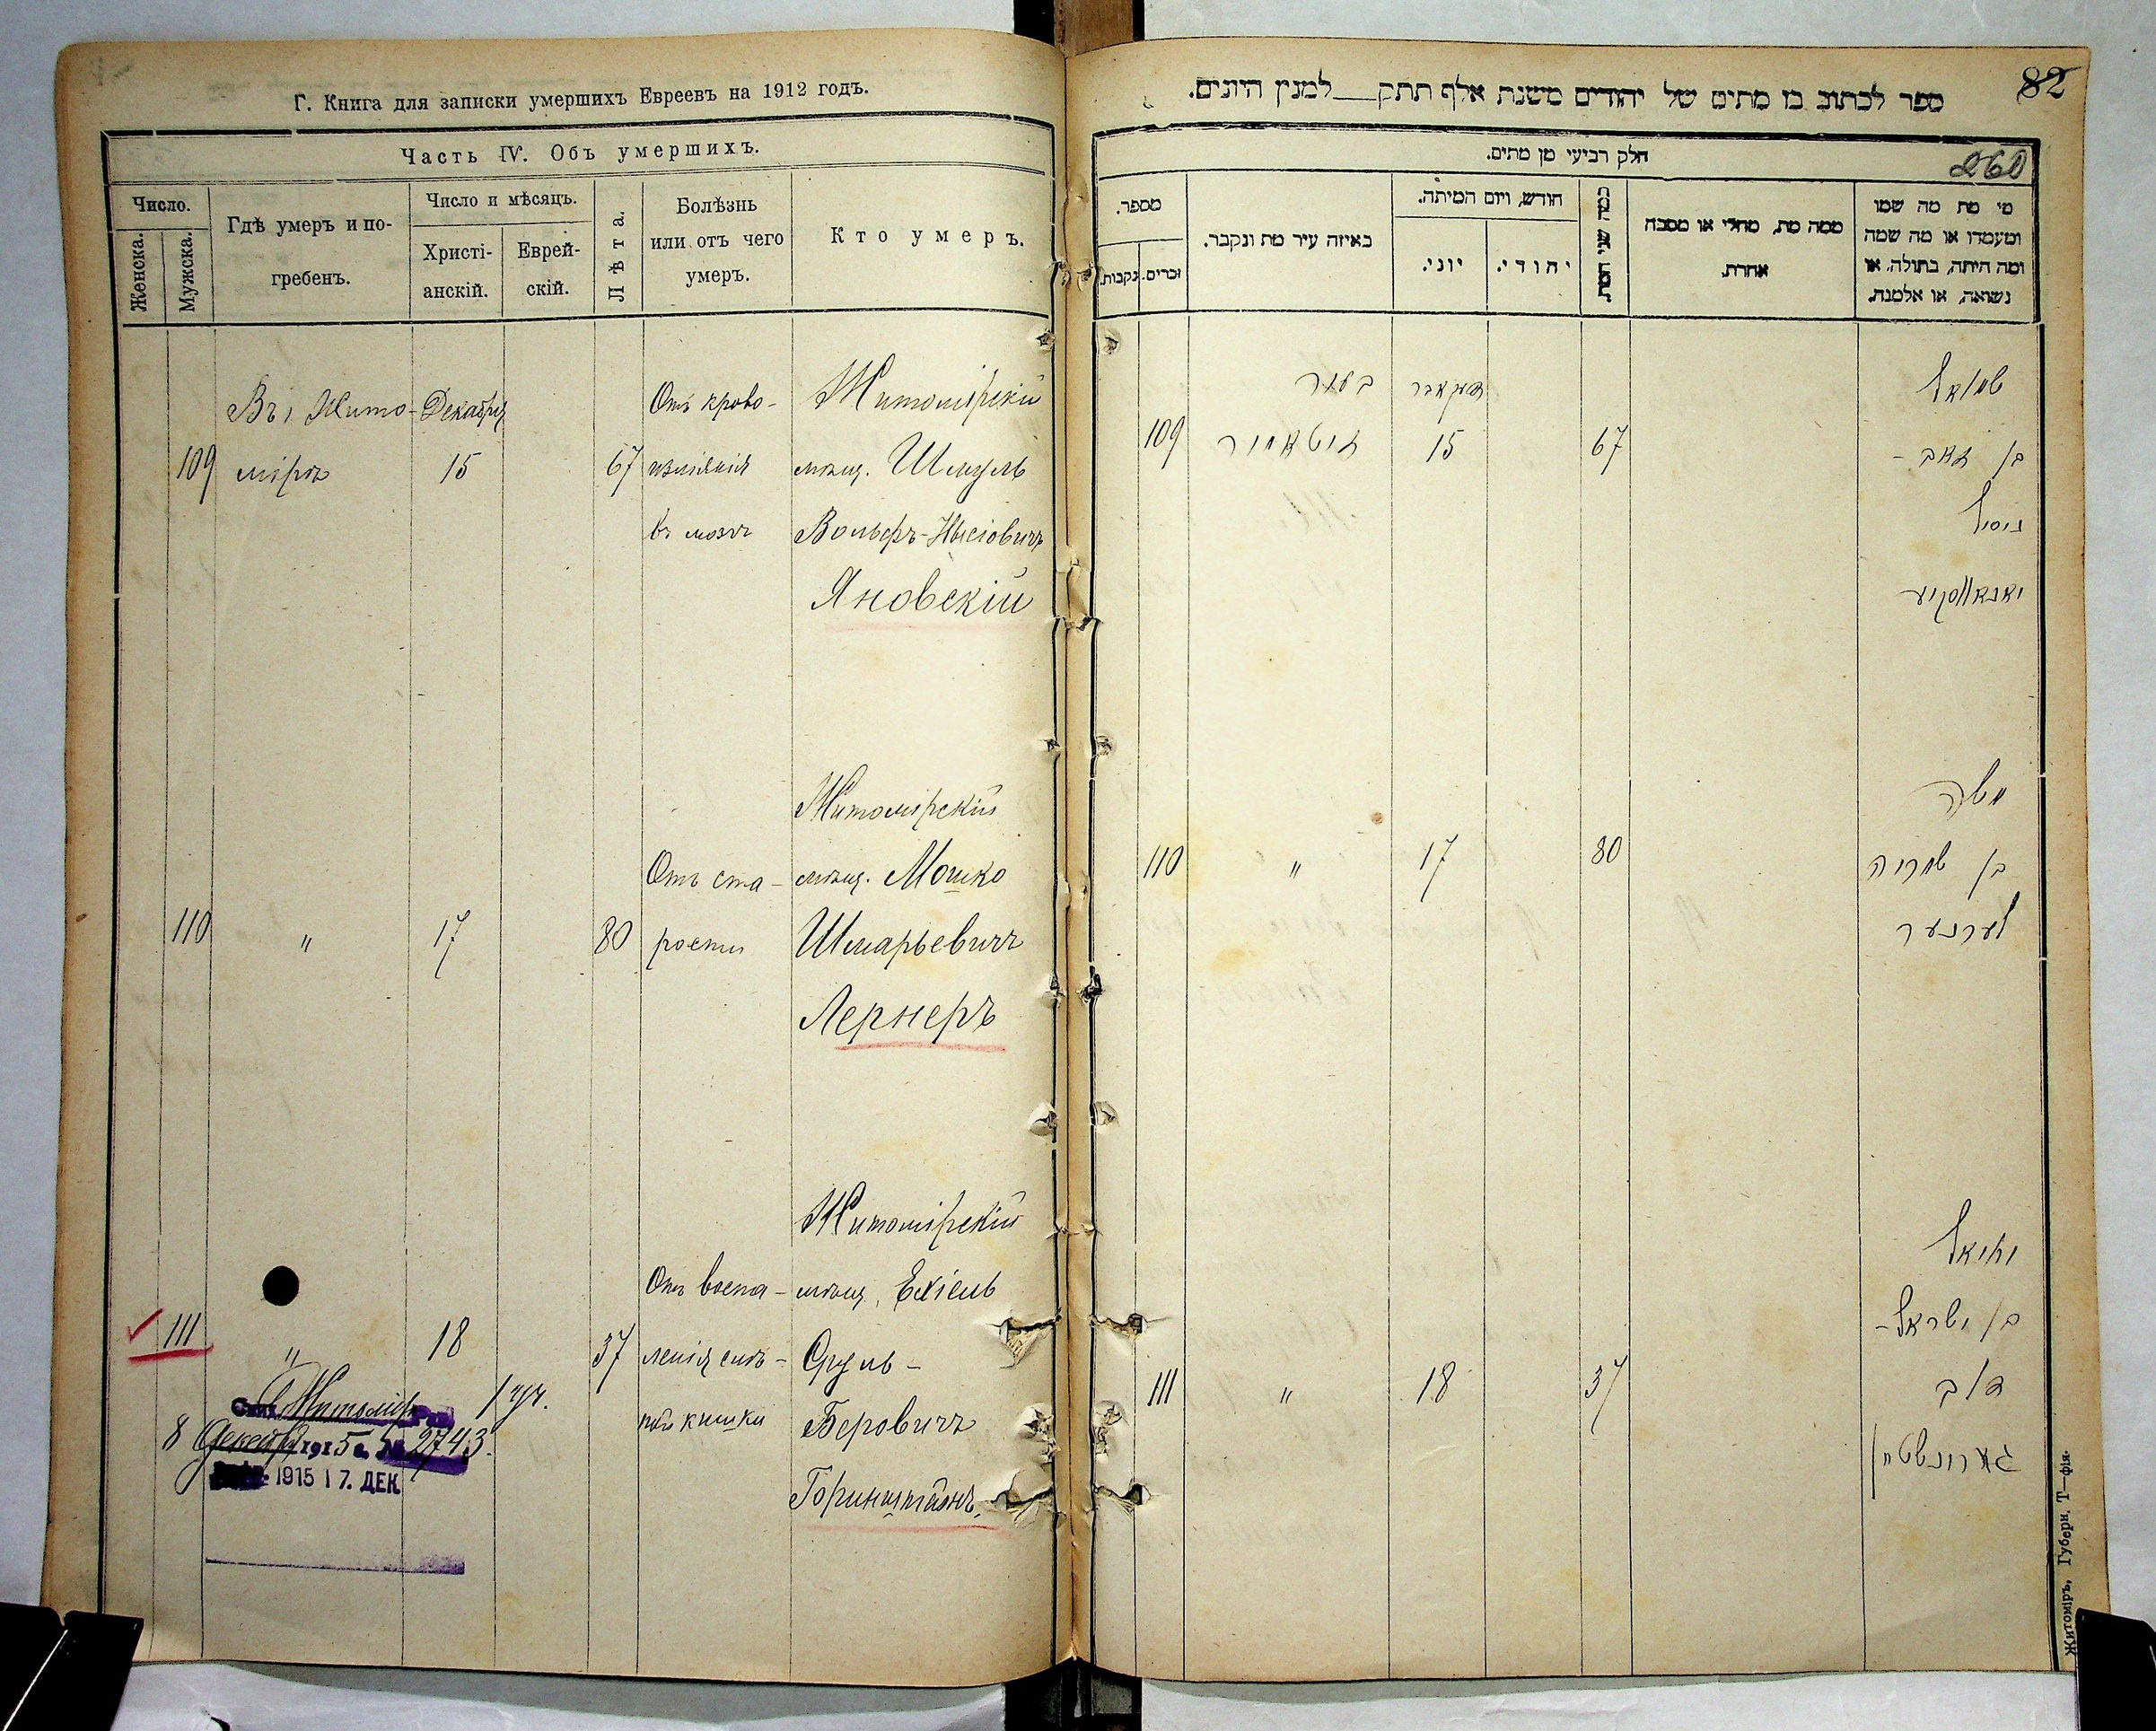 Г. Книга для записки умершихъ Евреевъ на 1912 годъ.
Часть IV. Объ умершихъ.
Число.
Женска.
Мужска.
Гдѣ умеръ и по-
гребенъ.
Число и мѣсяцъ.
Христі-
анскій.
Еврей-
скій.
Лѣта.
Болѣзнь
или отъ чего
умеръ.
Кто умеръ.
Въ г. Жито- Декабря Отъ крово- Житомірскій
109 мірѣ 15 67 изліянія мѣщ. Шмуль
въ мозгъ Вольфъ-
Яновскій
Житомірскій
Отъ ста- мѣщ. Мошко
110 " 17 80 рости Шмарьевичъ
Лернеръ
Житомірскій
Отъ воспа- мѣщ. Ехіель
111 " 18 37 ленія слѣ- Сруль-
пой кишки Беровичъ
Горинштейнъ
Житомір
8 Декабря 1915 г. № 2743.
1915 17. ДЕК
82
ספר לכתוב בו מתים של יהודים משנת אלף תתק___למנין היונים.
260
חלק רביעי מן מתים.
מספר.
נקבות.
זכרים.
באיזה עיר מת ונקבר.
חודש, ויום המיתה.
יוני.
יהודי.
כמה שני המת.
ממה מת, מחלי או מסבה
אחרת.
מי מת מה שמו
ומעמדו או מה שמה
ומה היתה, בתולה, או
נשואה, או אלמנה.
שמואל
בעיר דעקאבר
109 זיטאמיר 15 67 בן זאב -
ניסל
יאנאווסקיע
משה
110 " 17 80 בן שמריה
לערנער
יחיאל
בן ישראל-
111 " 18 37 דוב
גארינשטיין
Житоміръ, Губерн. Т—фія.